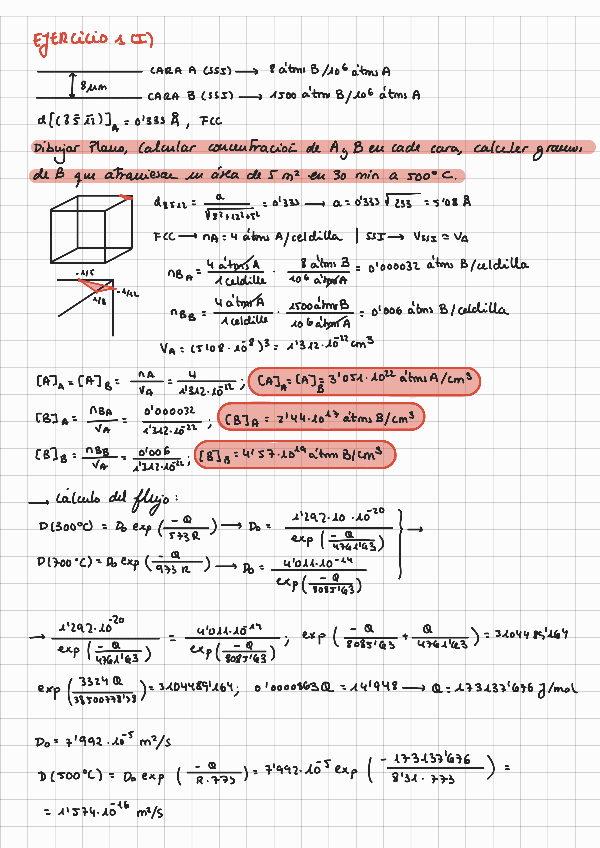 EJERCICIO 1 (I)
CARA A (SSI) → 8 átms B/10⁶ átms A
8 μm
CARA B (SSI) → 1500 átms B/10⁶ átms A
d[(8 5̄ 1̄2̄)]_A = 0'333 Å, FCC
Dibujar Plano, calcular concentración de A y B en cada cara, calcular gramos
de B que atraviesan un área de 5 m² en 30 min a 500°C.
d₈₅₁₂ = a/√(8²+12²+5²) = 0'333 → a = 0'333 √233 = 5'08 Å
FCC → n_A = 4 átms A/celdilla | SSI → V_SSI ≈ V_A
-1/5
-1/12
1/8
n_BA = 4 átms A/1 celdilla · 8 átms B/10⁶ átms A = 0'000032 átms B/celdilla
n_BB = 4 átms A/1 celdilla · 1500 átms B/10⁶ átms A = 0'006 átms B/celdilla
V_A = (5'08 · 10⁻⁸)³ = 1'312·10⁻²² cm³
[A]_A = [A]_B = n_A/V_A = 4/1'312·10⁻²² ; [A]_A = [A]_B = 3'051·10²² átms A/cm³
[B]_A = n_BA/V_A = 0'000032/1'312·10⁻²² ; [B]_A = 2'44·10¹⁷ átms B/cm³
[B]_B = n_BB/V_A = 0'006/1'312·10⁻²² ; [B]_B = 4'57·10¹⁹ átm B/cm³
→ Cálculo del flujo:
D(300°C) = D₀ exp(-Q/573 R) → D₀ = 1'292·10·10⁻²⁰/exp(-Q/4761'63) } →
D(700°C) = D₀ exp(-Q/973 R) → D₀ = 4'011·10⁻¹⁴/exp(-Q/8085'63)
→ 1'292·10⁻²⁰/exp(-Q/4761'63) = 4'011·10⁻¹⁴/exp(-Q/8085'63) ; exp(-Q/8085'63 + Q/4761'63) = 3104489'164
exp(3324 Q/38500778'78) = 3104489'164; 0'0000863 Q = 14'948 → Q = 173137'676 J/mol
D₀ = 7'992·10⁻⁵ m²/s
D(500°C) = D₀ exp(-Q/R·773) = 7'992·10⁻⁵ exp(-173137'676/8'31·773) =
= 1'574·10⁻¹⁶ m²/s